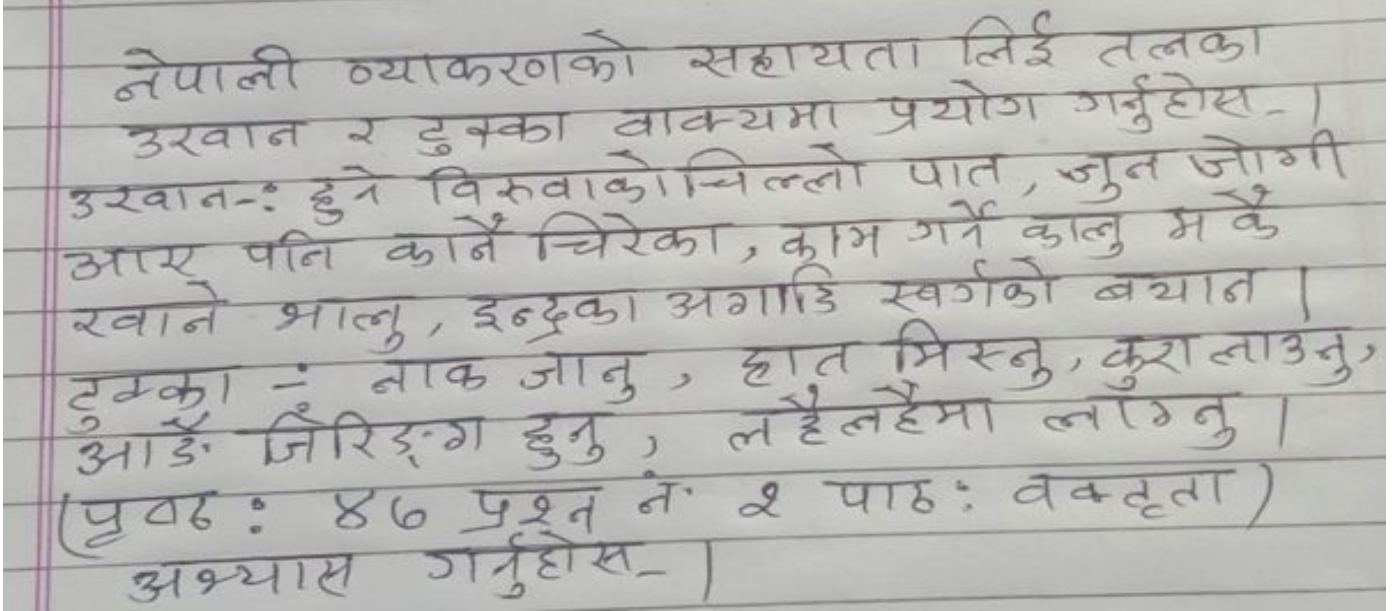 नेपाली व्याकरणको सहायता लिई तलका
उखान र टुक्का वाक्यमा प्रयोग गर्नुहोस् ।
उखान-: हुने विरुवाको चिल्लो पात, जुन जोगी
आए पनि कानै चिरेका, काम गर्ने कालु मकै
खाने भालु, इन्द्रका अगाडि स्वर्गको बयान ।
टुक्का -: नाक जानु, हात मिस्नु, कुरा लाउनु,
आङै जिरिङ्ग हुनु, लहैलहैमा लाग्नु ।
(पृष्ठ : ४७ प्रश्न नं. २ पाठ : वक्तृता)
अभ्यास गर्नुहोस् ।